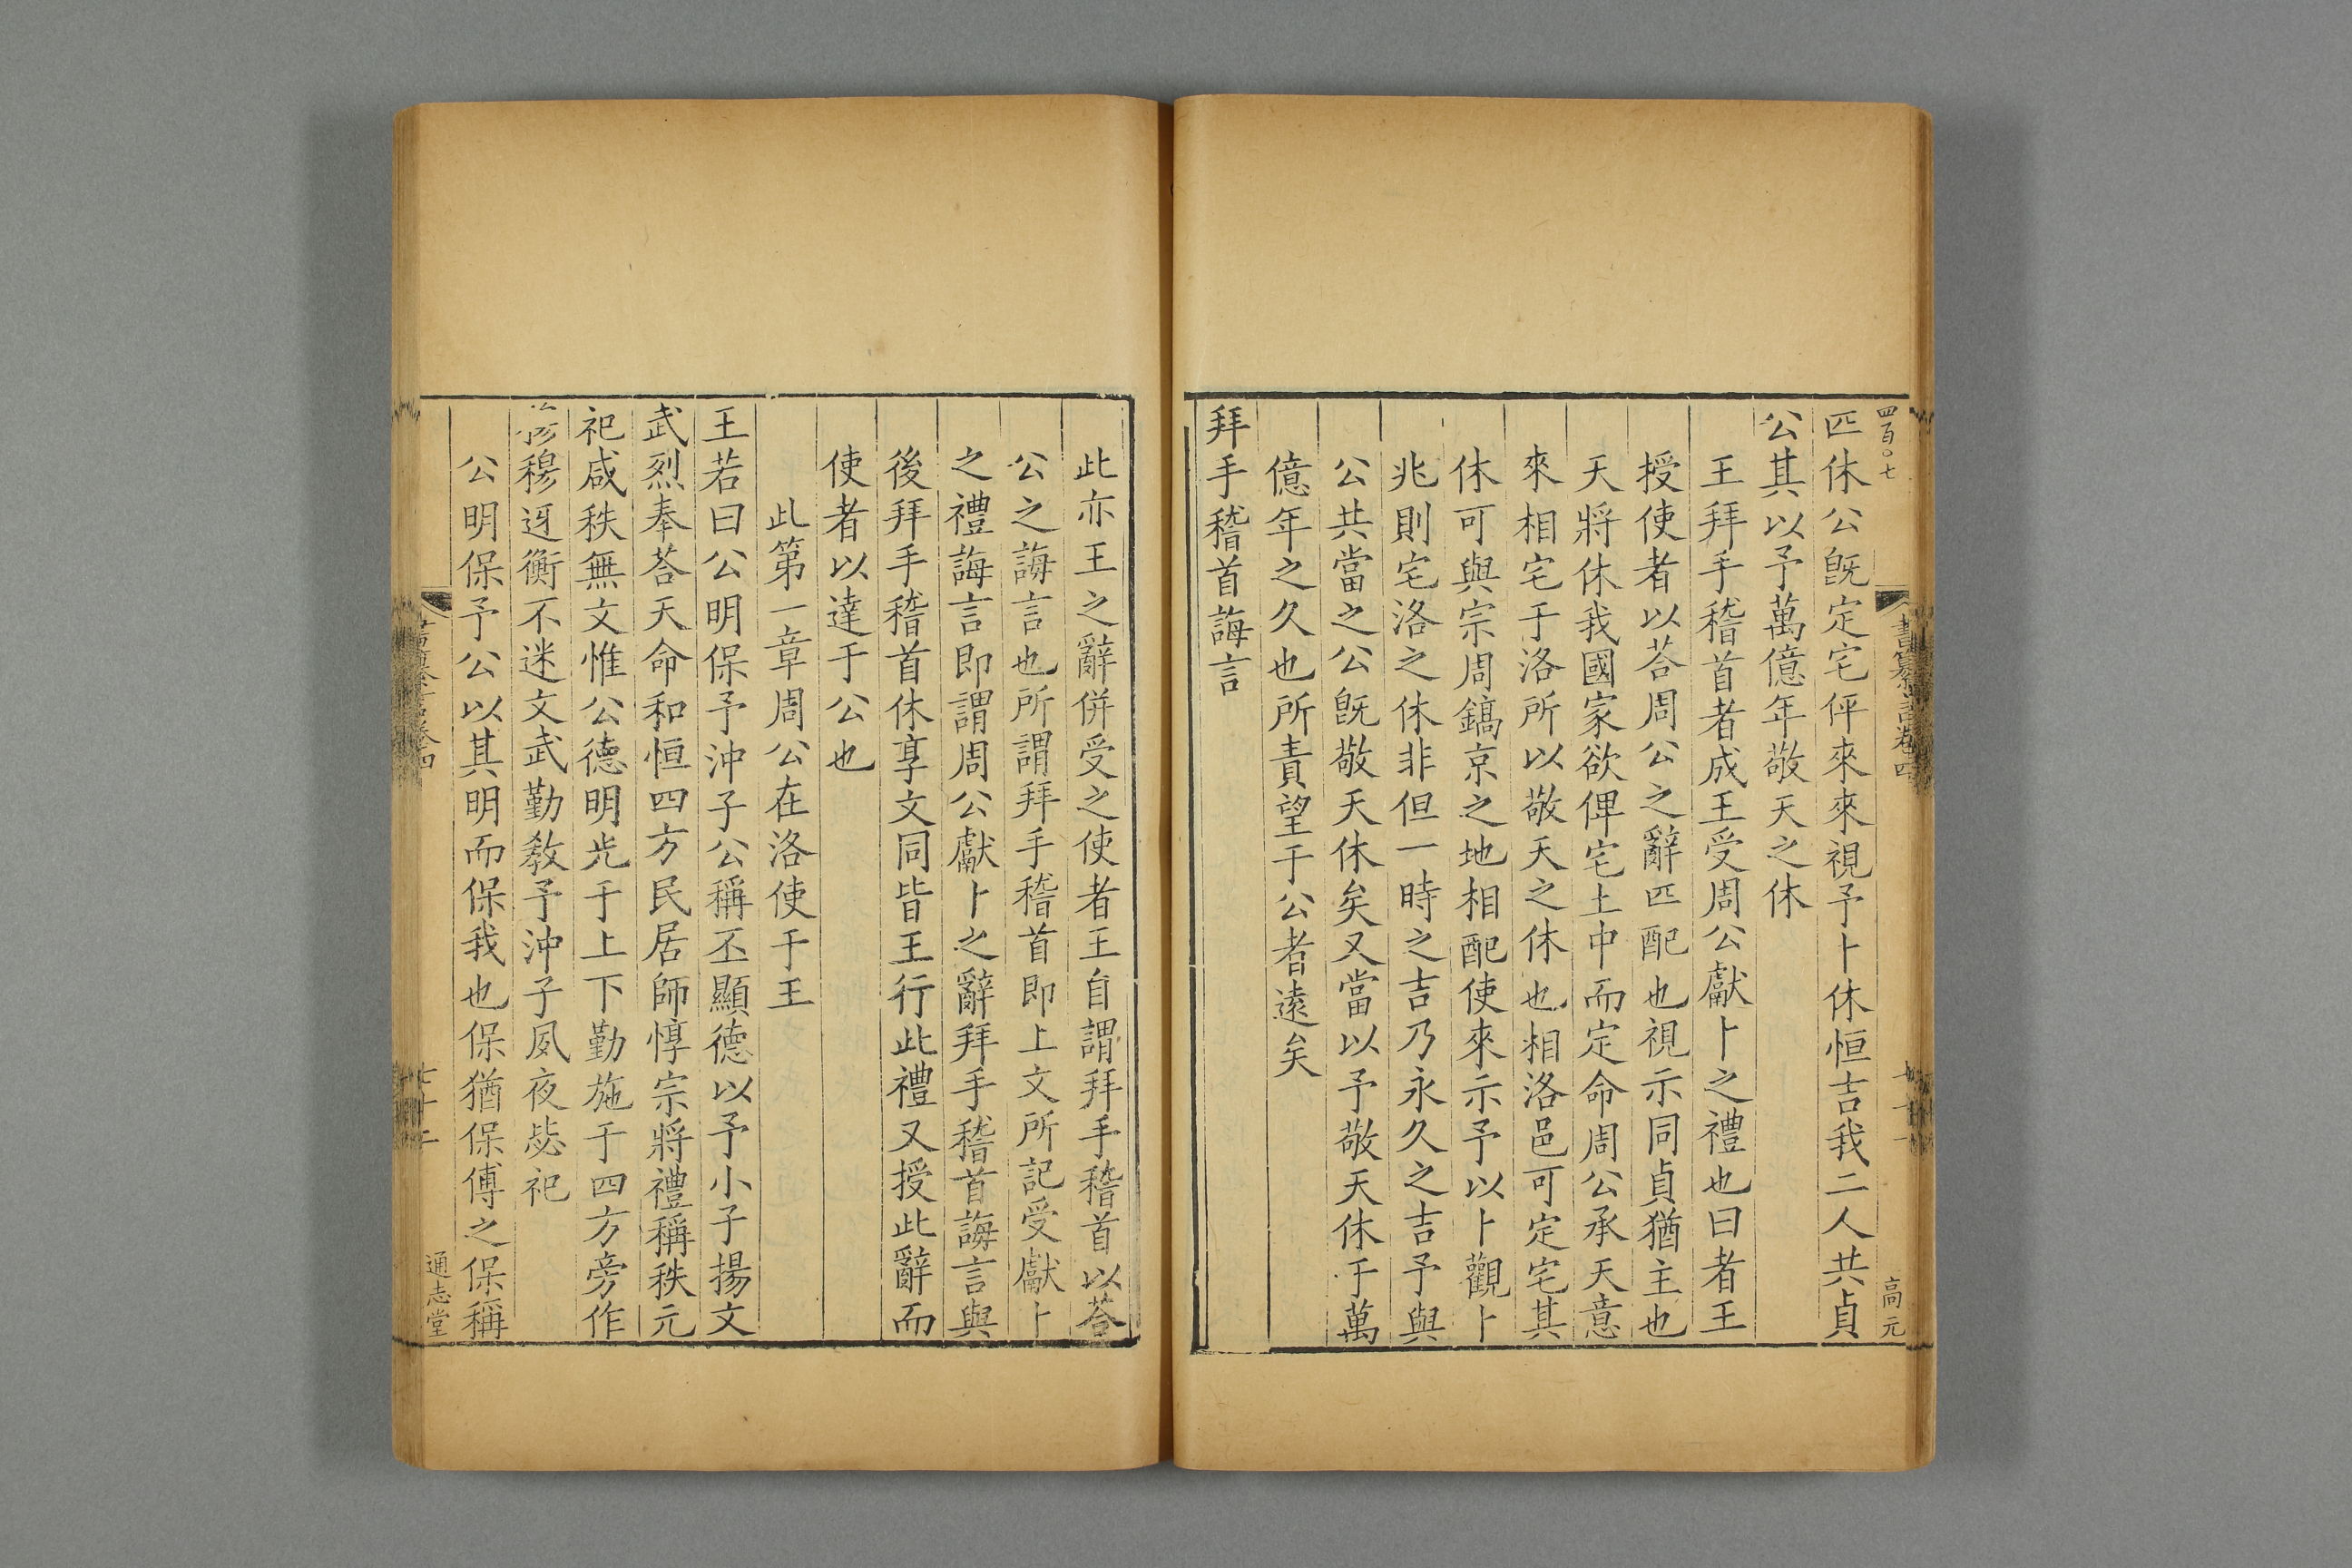 四百〇七
書纂言卷四
高元
匹休公旣定宅伻來來視予卜休恒吉我二人共貞
公其以予萬億年敬天之休
王拜手稽首者成王受周公獻卜之禮也曰者王
授使者以荅周公之辭匹配也視示同貞猶主也
天將休我國家欲俾宅土中而定命周公承天意
來相宅于洛所以敬天之休也相洛邑可定宅其
休可與宗周鎬京之地相配使來示予以卜觀卜
兆則宅洛之休非但一時之吉乃永久之吉予與
公共當之公旣敬天休矣又當以予敬天休于萬
億年之久也所責望于公者遠矣
拜手稽首誨言
此亦王之辭併受之使者王自謂拜手稽首以荅
公之誨言也所謂拜手稽首即上文所記受獻卜
之禮誨言即謂周公獻卜之辭拜手稽首誨言與
後拜手稽首休享文同皆王行此禮又授此辭而
使者以達于公也
此第一章周公在洛使于王
王若曰公明保予沖子公稱丕顯德以予小子揚文
武烈奉荅天命和恒四方民居師惇宗將禮稱秩元
祀咸秩無文惟公德明光于上下勤施于四方旁作
穆迓衡不迷文武勤敎予沖子夙夜毖祀
公明保予公以其明而保我也保猶保傅之保稱
七十二
通志堂